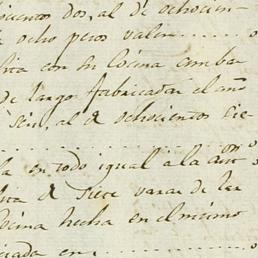 siento dos, al de ochocien
ocho pesos valen
con su cocina embar
de largo fabricadas el año
seis, al de ochocientos sie
en todo igual a la ant
de siete varas de lar
cocina hecha en el mismo
en